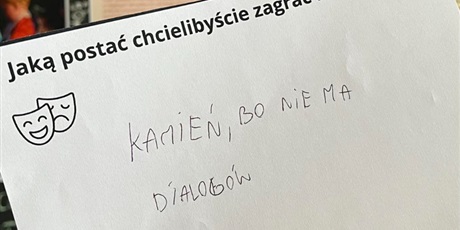 Jaką postać chcielibyście zagrać
KAMIEŃ, BO NIE MA
DIALOGÓW